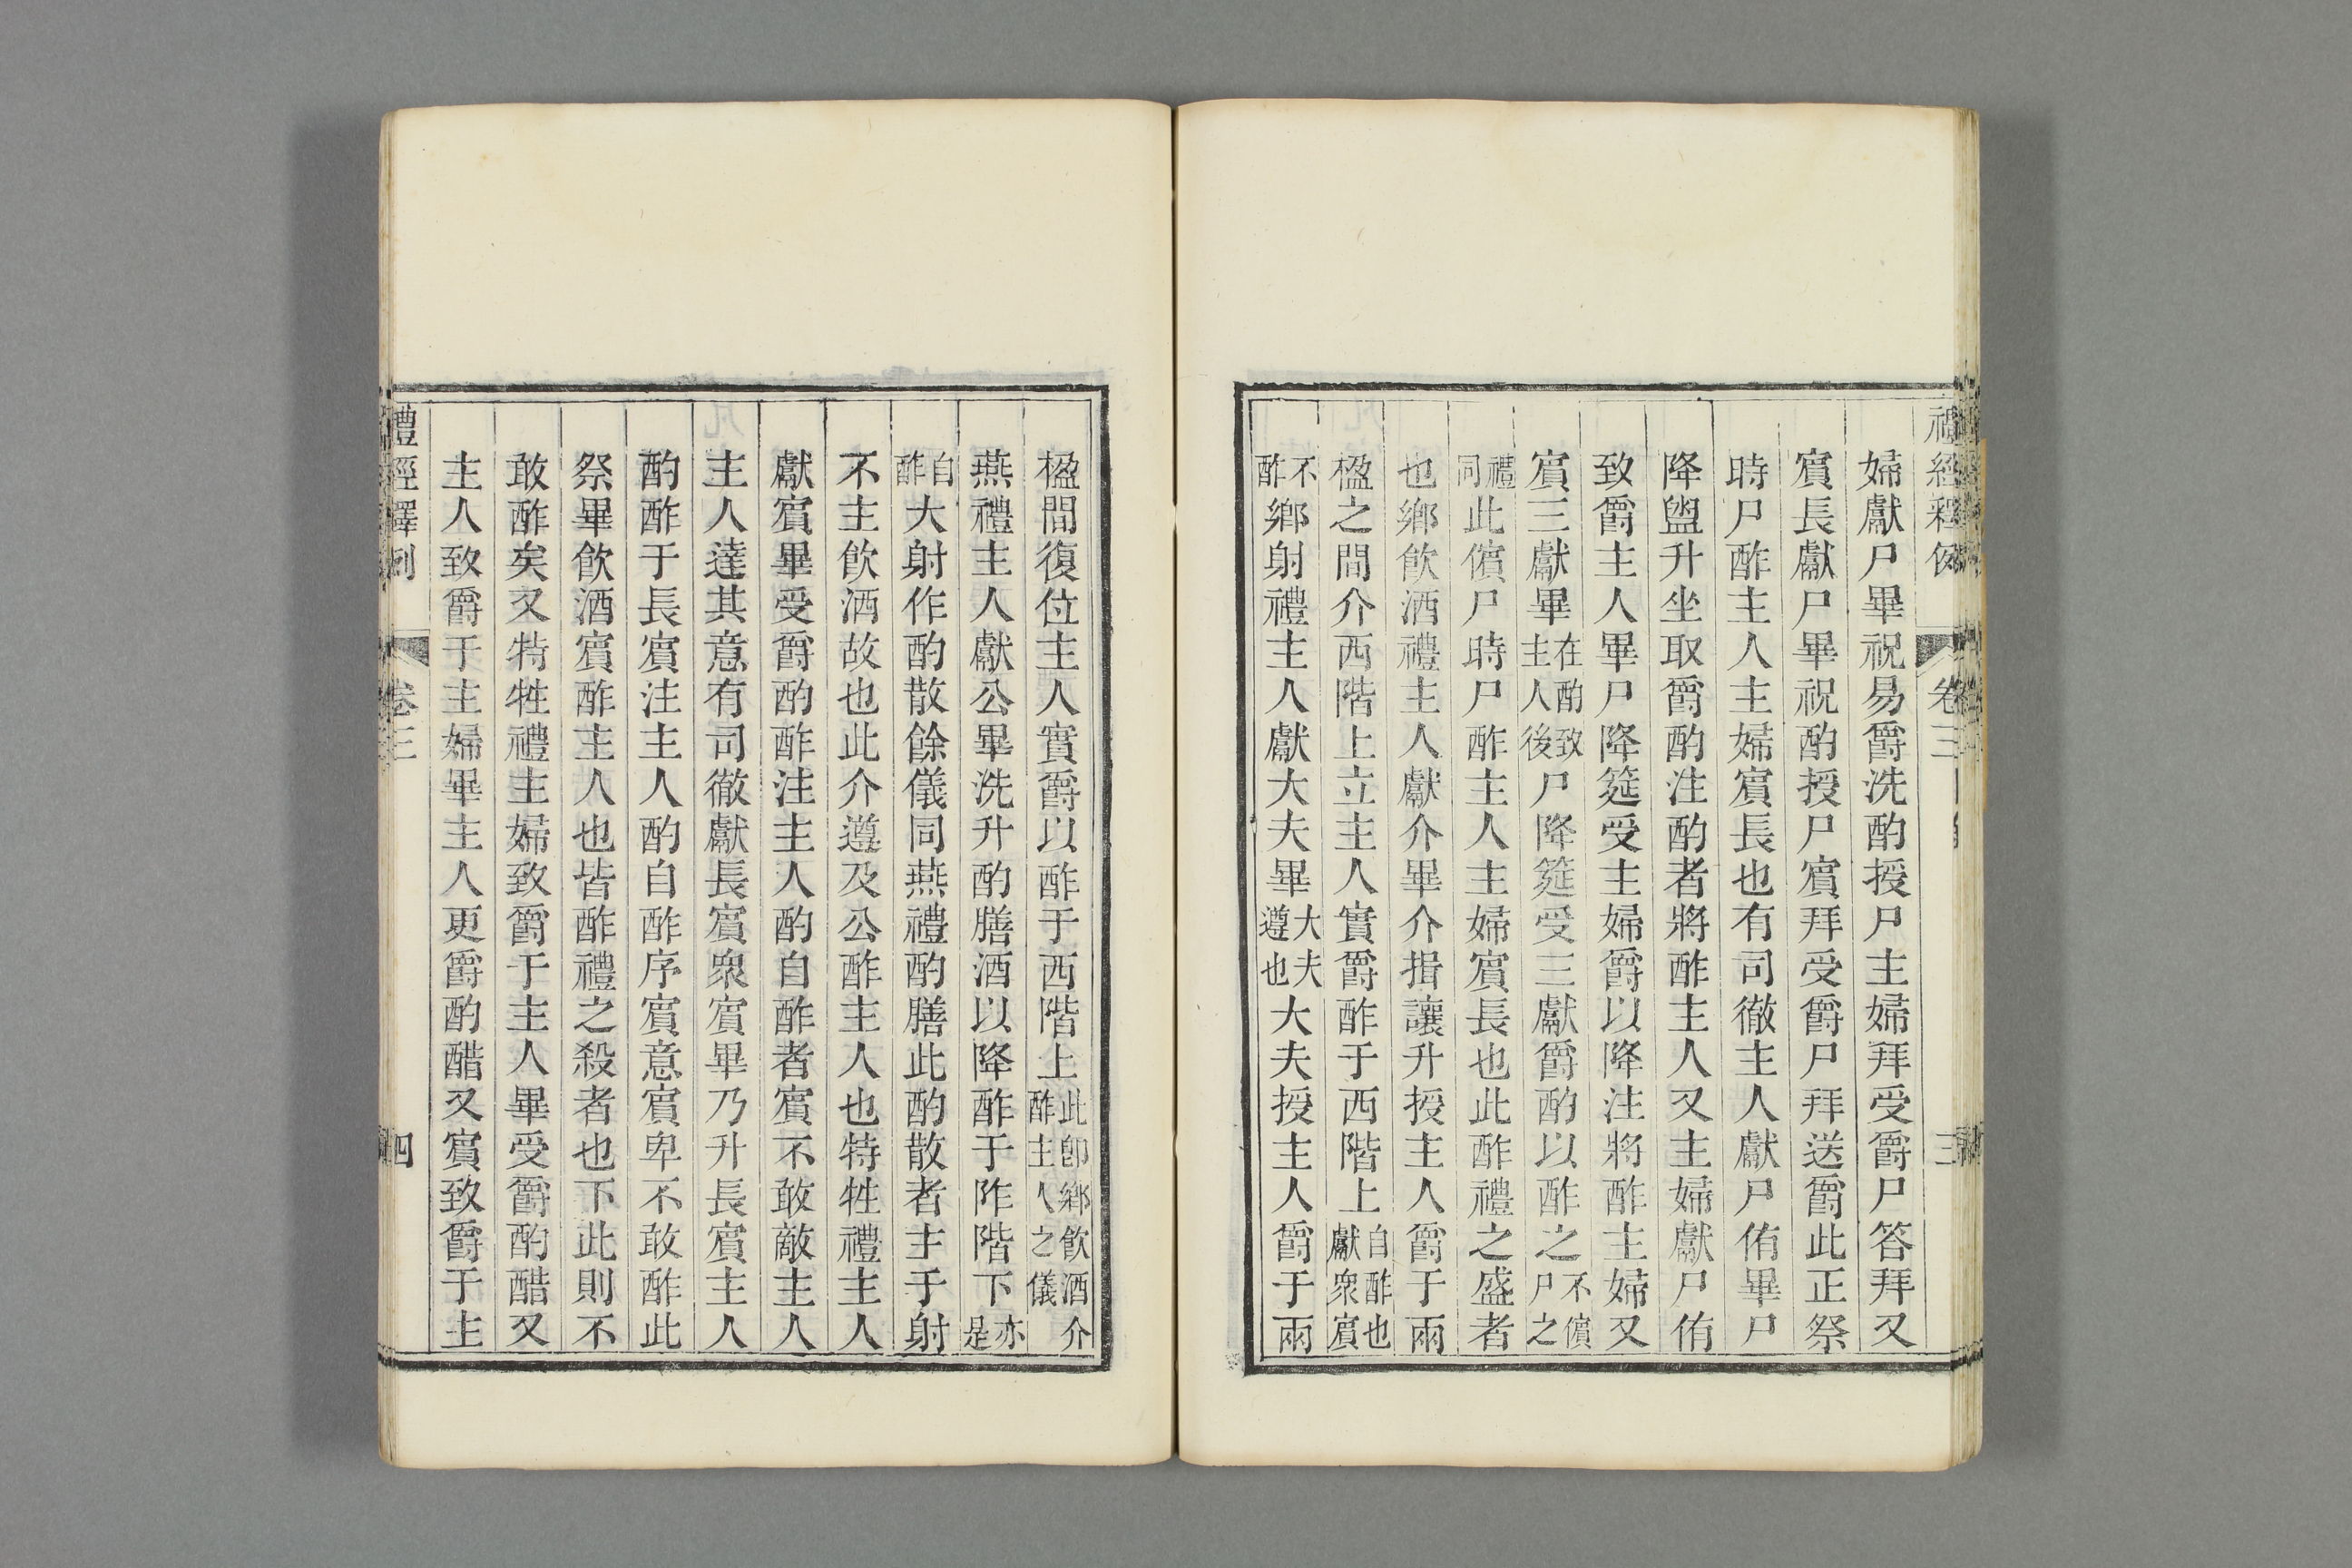 禮經釋例
卷三
三
婦獻尸畢祝易爵洗酌授尸主婦拜受爵尸答拜又
賓長獻尸畢祝酌授尸賓拜受爵尸拜送爵此正祭
時尸酢主人主婦賓長也有司徹主人獻尸侑畢尸
降盥升坐取爵酌注酌者將酢主人又主婦獻尸侑
致爵主人畢尸降筵受主婦爵以降注將酢主婦又
賓三獻畢在酌致主人後尸降筵受三獻爵酌以酢之不儐尸之
禮同此儐尸時尸酢主人主婦賓長也此酢禮之盛者
也鄉飲酒禮主人獻介畢介揖讓升授主人爵于兩
楹之間介西階上立主人實爵酢于西階上自酢也獻衆賓
不酢鄉射禮主人獻大夫畢大夫遵也大夫授主人爵于兩
楹間復位主人實爵以酢于西階上此卽鄉飲酒介酢主人之儀
燕禮主人獻公畢洗升酌膳酒以降酢于阼階下亦是
自酢大射作酌散餘儀同燕禮酌膳此酌散者主于射
不主飲酒故也此介遵及公酢主人也特牲禮主人
獻賓畢受爵酌酢注主人酌自酢者賓不敢敵主人
主人達其意有司徹獻長賓衆賓畢乃升長賓主人
酌酢于長賓注主人酌自酢序賓意賓卑不敢酢此
祭畢飲酒賓酢主人也皆酢禮之殺者也下此則不
敢酢矣又特牲禮主婦致爵于主人畢受爵酌醋又
主人致爵于主婦畢主人更爵酌醋又賓致爵于主
禮經釋例
卷三
四